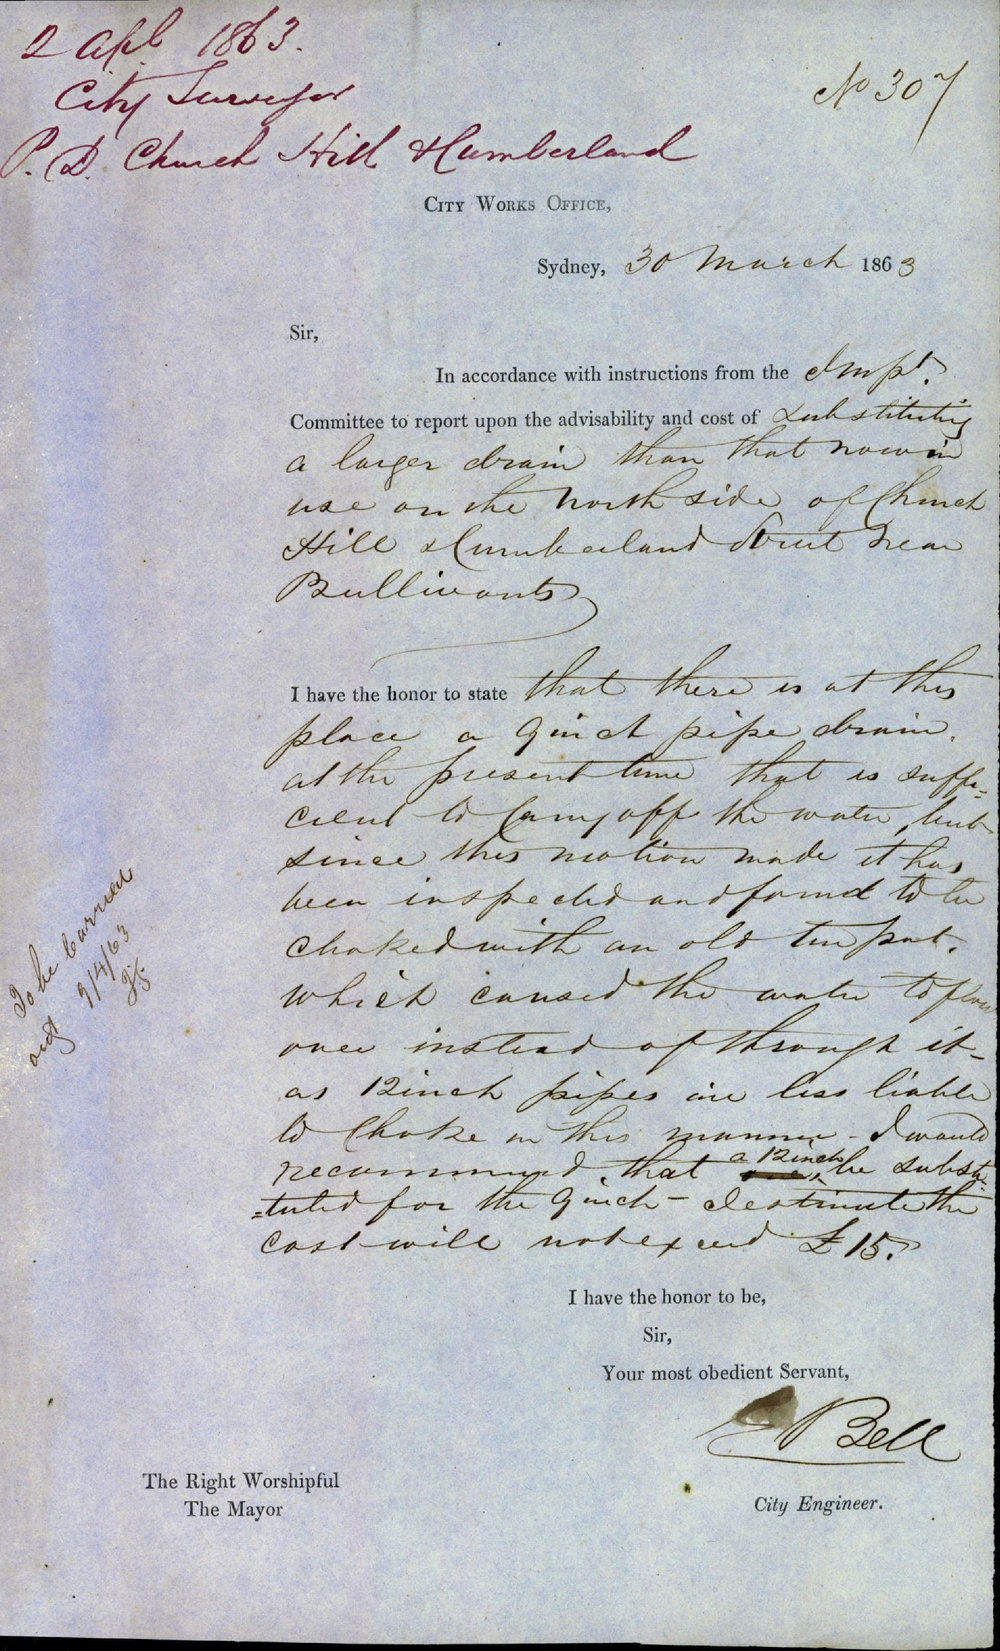 2 Apl 1863.
City Surveyor
P. D. Church Hill & Cumberland
No 307
CITY WORKS OFFICE,
Sydney, 30 March 1863
Sir,
In accordance with instructions from the Impt.
Committee to report upon the advisability and cost of Substituting
a larger drain than that now in
use on the North side of Church
Hill & Cumberland Street near
Bullivants
I have the honor to state that there is at this
place a 9 inch pipe drain.
at the present time that is suffi=
cient to Carry off the water, but
since this motion made it has
been inspected and found to be
choked with an old tin pot.
which caused the water to flow
over instead of through it -
as 12 inch pipes are less liable
to Choke in this manner - I would
recommend that a 12 inch be substi
=tuted for the 9 inch - I estimate the
cost will not exceed £15.
I have the honor to be,
Sir,
Your most obedient Servant,
E Bell
City Engineer.
The Right Worshipful
The Mayor
To be Carried
out 9/4/63